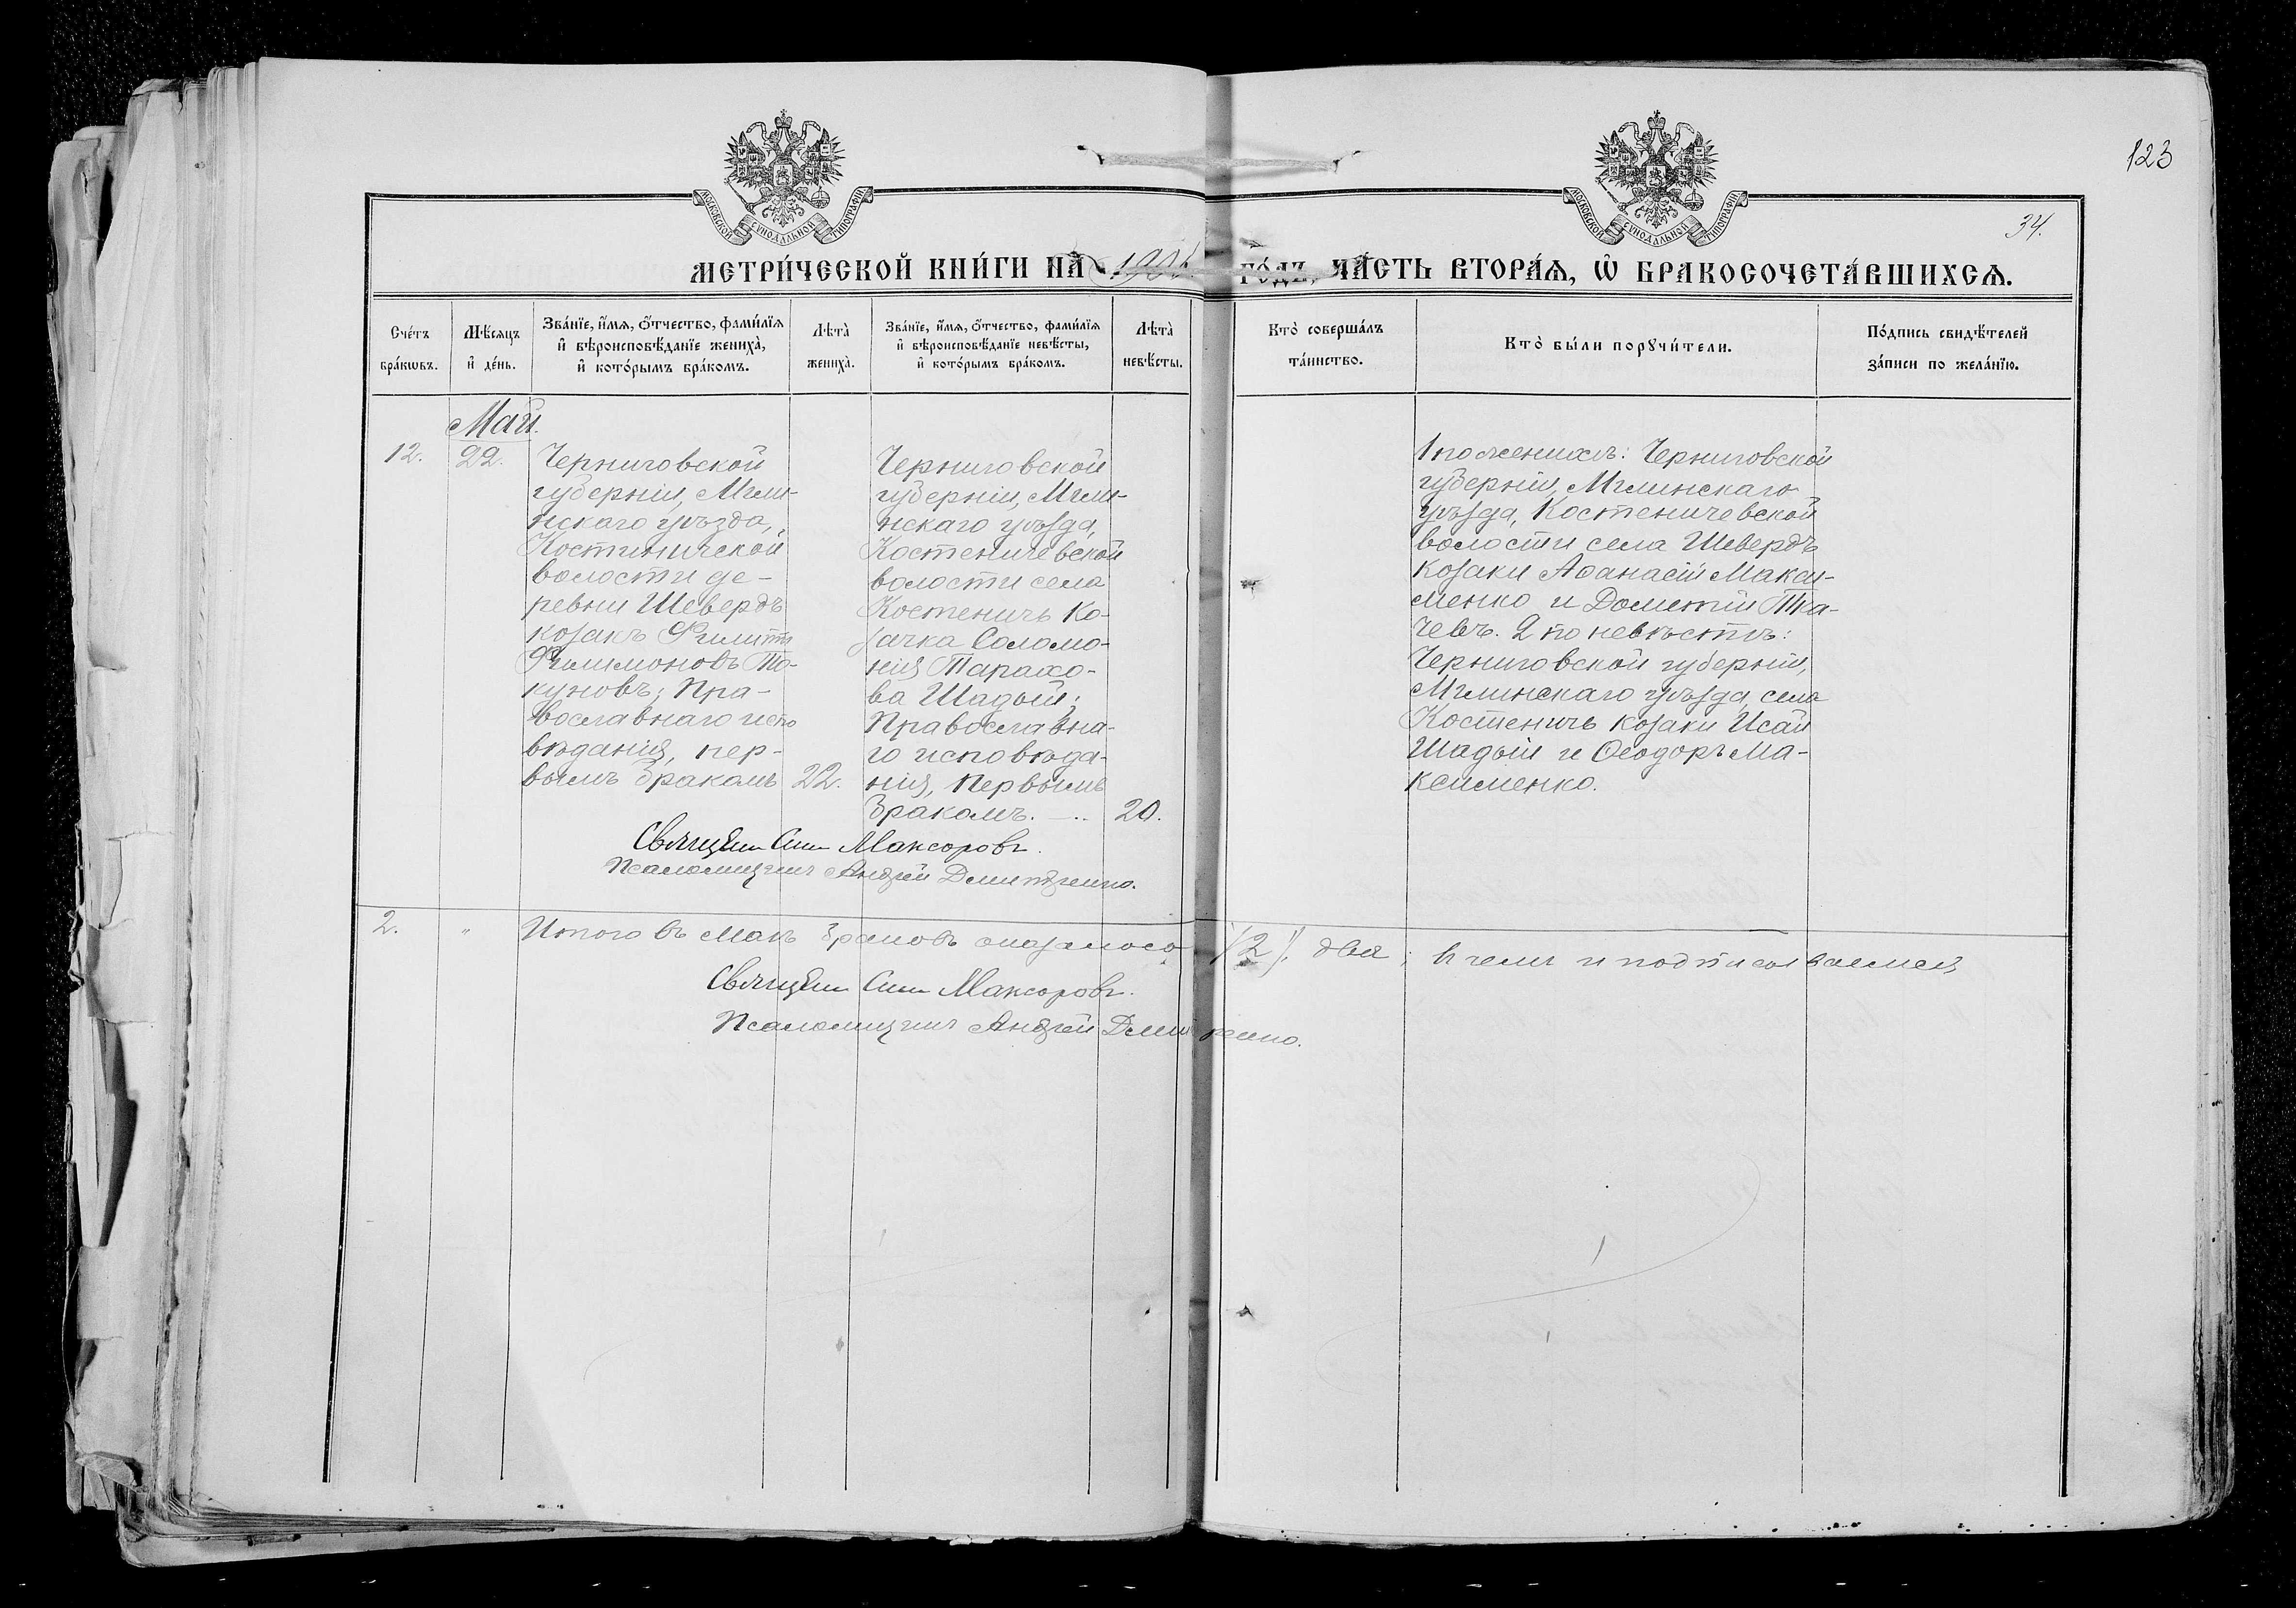 123
34.
МОСКОВСКОЙ СУНОДАЛЬНОЙ ТИПОГРАФІИ
МОСКОВСКОЙ СУНОДАЛЬНОЙ ТИПОГРАФІИ
МЕТРИ́ЧЕСКОЙ КНИ́ГИ НА̀ ГО́ДЪ, ЧА́СТЬ ВТОРА́Ѧ, Ѡ҆ БРАКОСОЧЕТА́ВШИХСѦ.
Сче́тъ бра́кѡвъ.
Мѣ́сѧцъ и҆ де́нь.
Зва́нїе, и҆́мѧ, ѻ҆́тчество, фами́лїѧ и҆ вѣроисповѣ́данїе жениха̀, и҆ кото́рымъ бра́комъ.
Лѣта̀ жениха̀.
Зва́нїе, и҆́мѧ, ѻ҆́тчество, фами́лїѧ и҆ вѣроисповѣ́данїе невѣ́сты, и҆ кото́рымъ бра́комъ.
Лѣта̀ невѣ́сты.
Кто̀ соверша́лъ та́инство.
Кто̀ бы́ли порꙋчи́тели.
По́дпись свидѣ́телей за́писи по жела́нїю.
Май.
12.
22.
Черниговской
губерніи, Мгли-
нскаго уѣзда,
Костиничской
волости де-
ревни Шевердъ
козакъ Филиппъ
Филимоновъ То-
куновъ; Пра-
вославнаго испо
вѣданія, пер-
вымъ бракомъ
22.
Черниговской
губерніи, Мгли-
нскаго уѣзда,
Костеничевской
волости села
Костеничъ Ко-
зачка Соломо-
нія Тарахо-
ва Шадый;
Православна-
го исповѣда-
нія, Первымъ
бракомъ.
20.
1 по женихѣ: Черниговской
губерніи, Мглинскаго
уѣзда, Костеничевской
волости села Шевердъ
козаки Аѳанасій Макси-
менко и Дометій Тка-
чевъ. 2 по невѣстѣ:
Черниговской губерніи,
Мглинскаго уѣзда, села
Костеничъ козаки Исай
Шадый и Ѳеодоръ Ма-
ксименко.
Священ Макаровъ.
Псаломщикъ Андрей Дмитренко.
2. " Итого въ Маѣ браковъ оказалось /2/ два; въ чемъ и подписываемся
Священ Макаровъ.
Псаломщикъ Андрей Дмитренко.